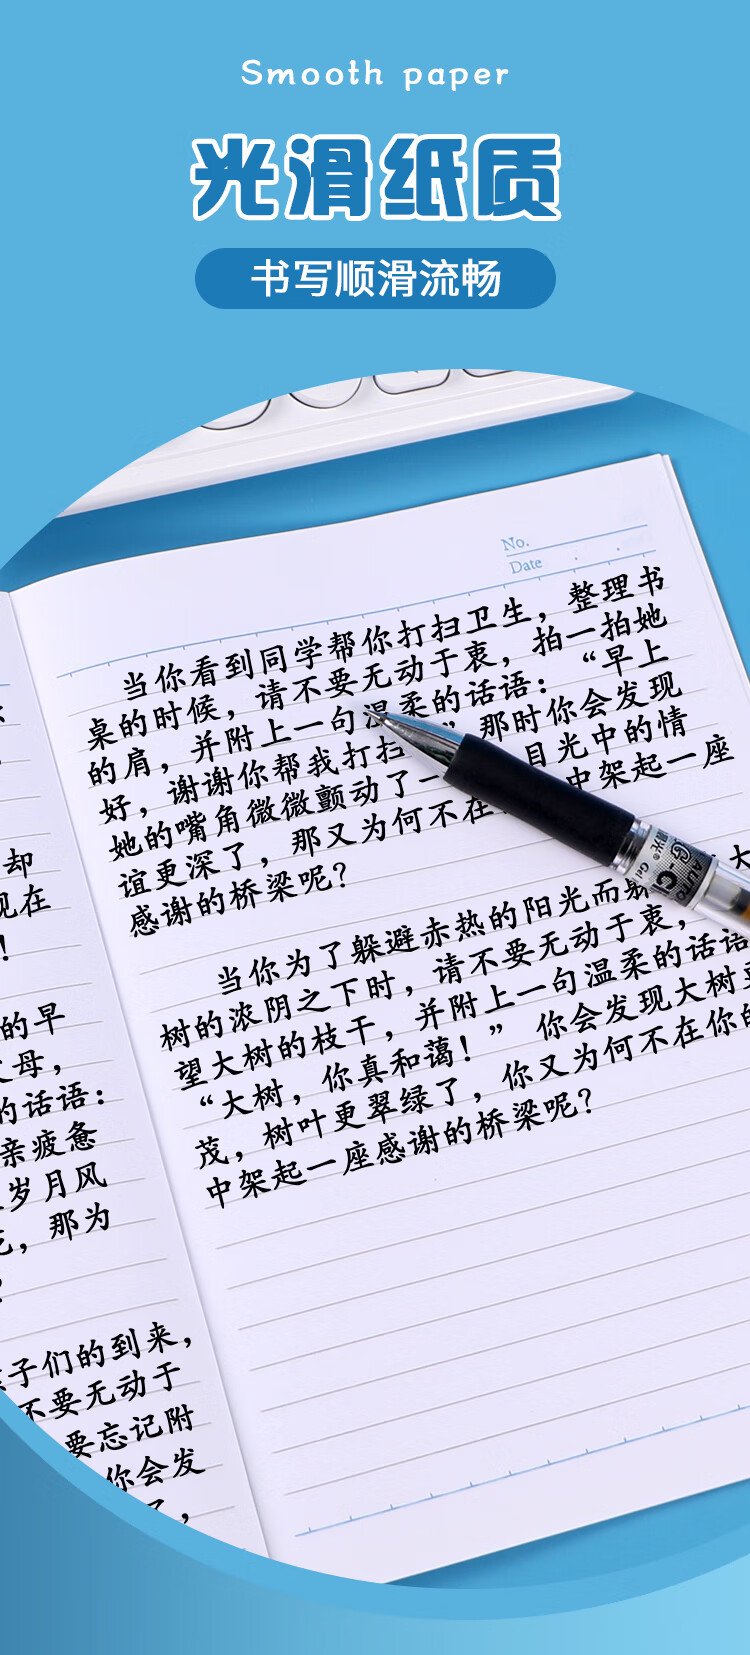 Smooth paper
光滑纸质
书写顺滑流畅
No.
Date
当你看到同学帮你打扫卫生，整理书
桌的时候，请不要无动于衷，拍一拍她
的肩，并附上一句温柔的话语：“早上
好，谢谢你帮我打扫 ”那时你会发现
她的嘴角微微颤动了一 目光中的情
谊更深了，那又为何不在 中架起一座
感谢的桥梁呢？
当你为了躲避赤热的阳光而躲 大
树的浓阴之下时，请不要无动于衷，
望大树的枝干，并附上一句温柔的话语
“大树，你真和蔼！”你会发现大树更
茂，树叶更翠绿了，你又为何不在你的
中架起一座感谢的桥梁呢？
却
现在
！
的早
母，
的话语：
亲疲惫
岁月风
，那为
子们的到来，
不要无动于
要忘记附
你会发
了，